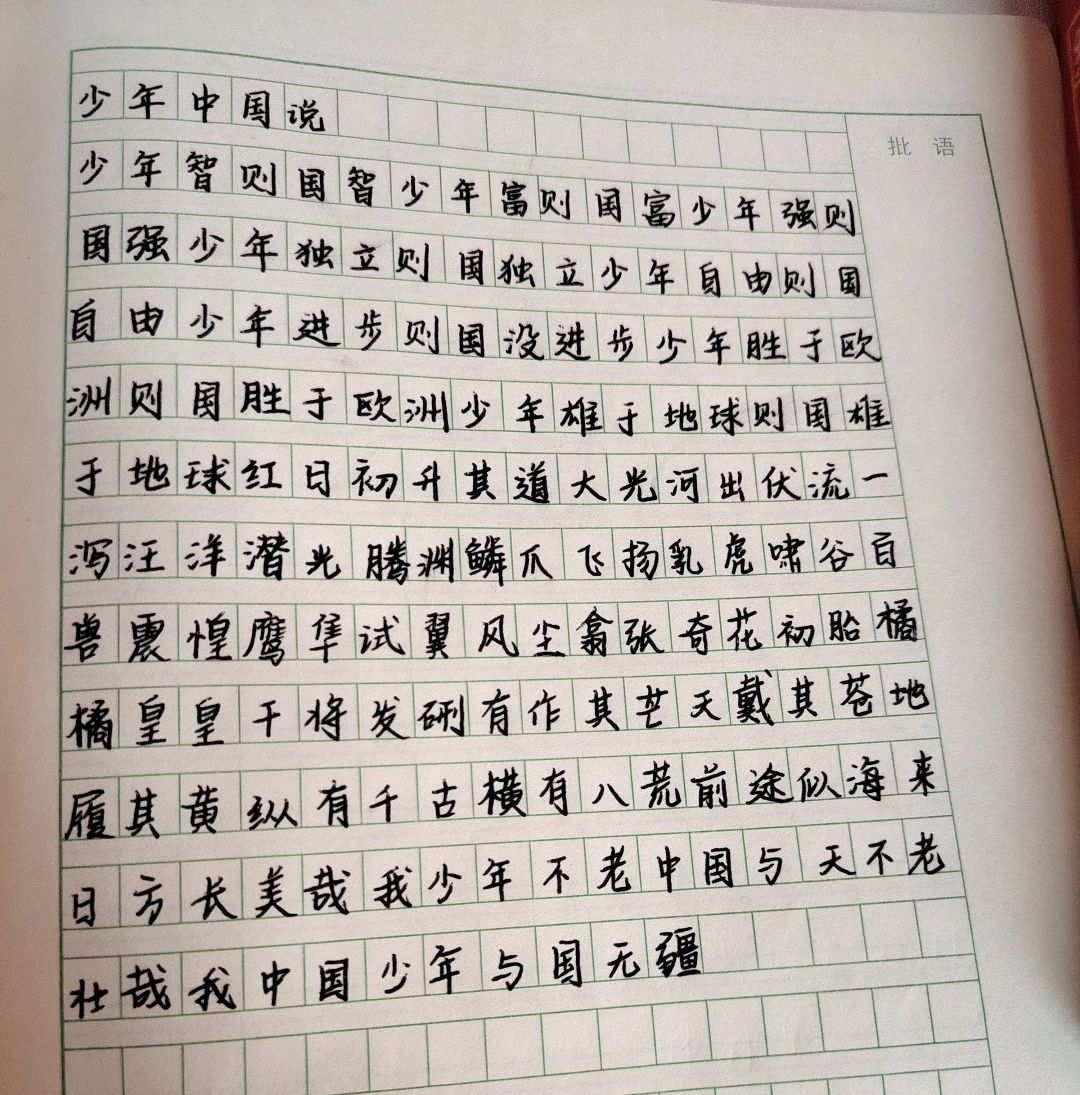 少年中国说
批语
少年智则国智少年富则国富少年强则
国强少年独立则国独立少年自由则国
自由少年进步则国没进步少年胜于欧
洲则国胜于欧洲少年雄于地球则国雄
于地球红日初升其道大光河出伏流一
泻汪洋潜光腾渊鳞爪飞扬乳虎啸谷百
兽震惶鹰隼试翼风尘翕张奇花初胎橘
橘皇皇干将发硎有作其芒天戴其苍地
履其黄纵有千古横有八荒前途似海来
日方长美哉我少年不老中国与天不老
壮哉我中国少年与国无疆